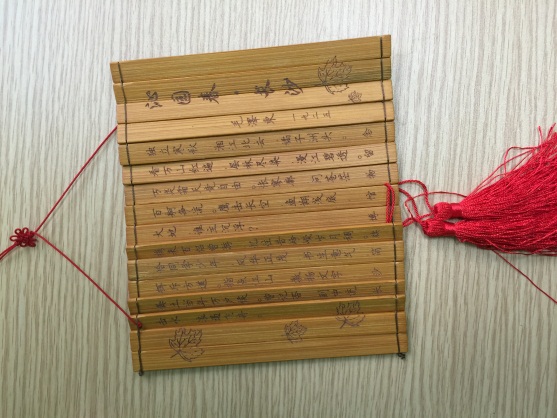 沁园春·长沙
毛泽东 一九二五
独立寒秋 湘江北去 橘子洲头。看
万山红遍 层林尽染 漫江碧透。
万类霜天竞自由。怅寥廓 问苍茫
百舸争流。鹰击长空 鱼翔浅底
大地 谁主沉浮？
携来百侣曾游 忆往昔峥嵘岁月稠
恰同学少年 风华正茂 书生意气
挥斥方遒。指点江山 激扬文字
粪土当年万户侯。曾记否 到中流
击水 浪遏飞舟？